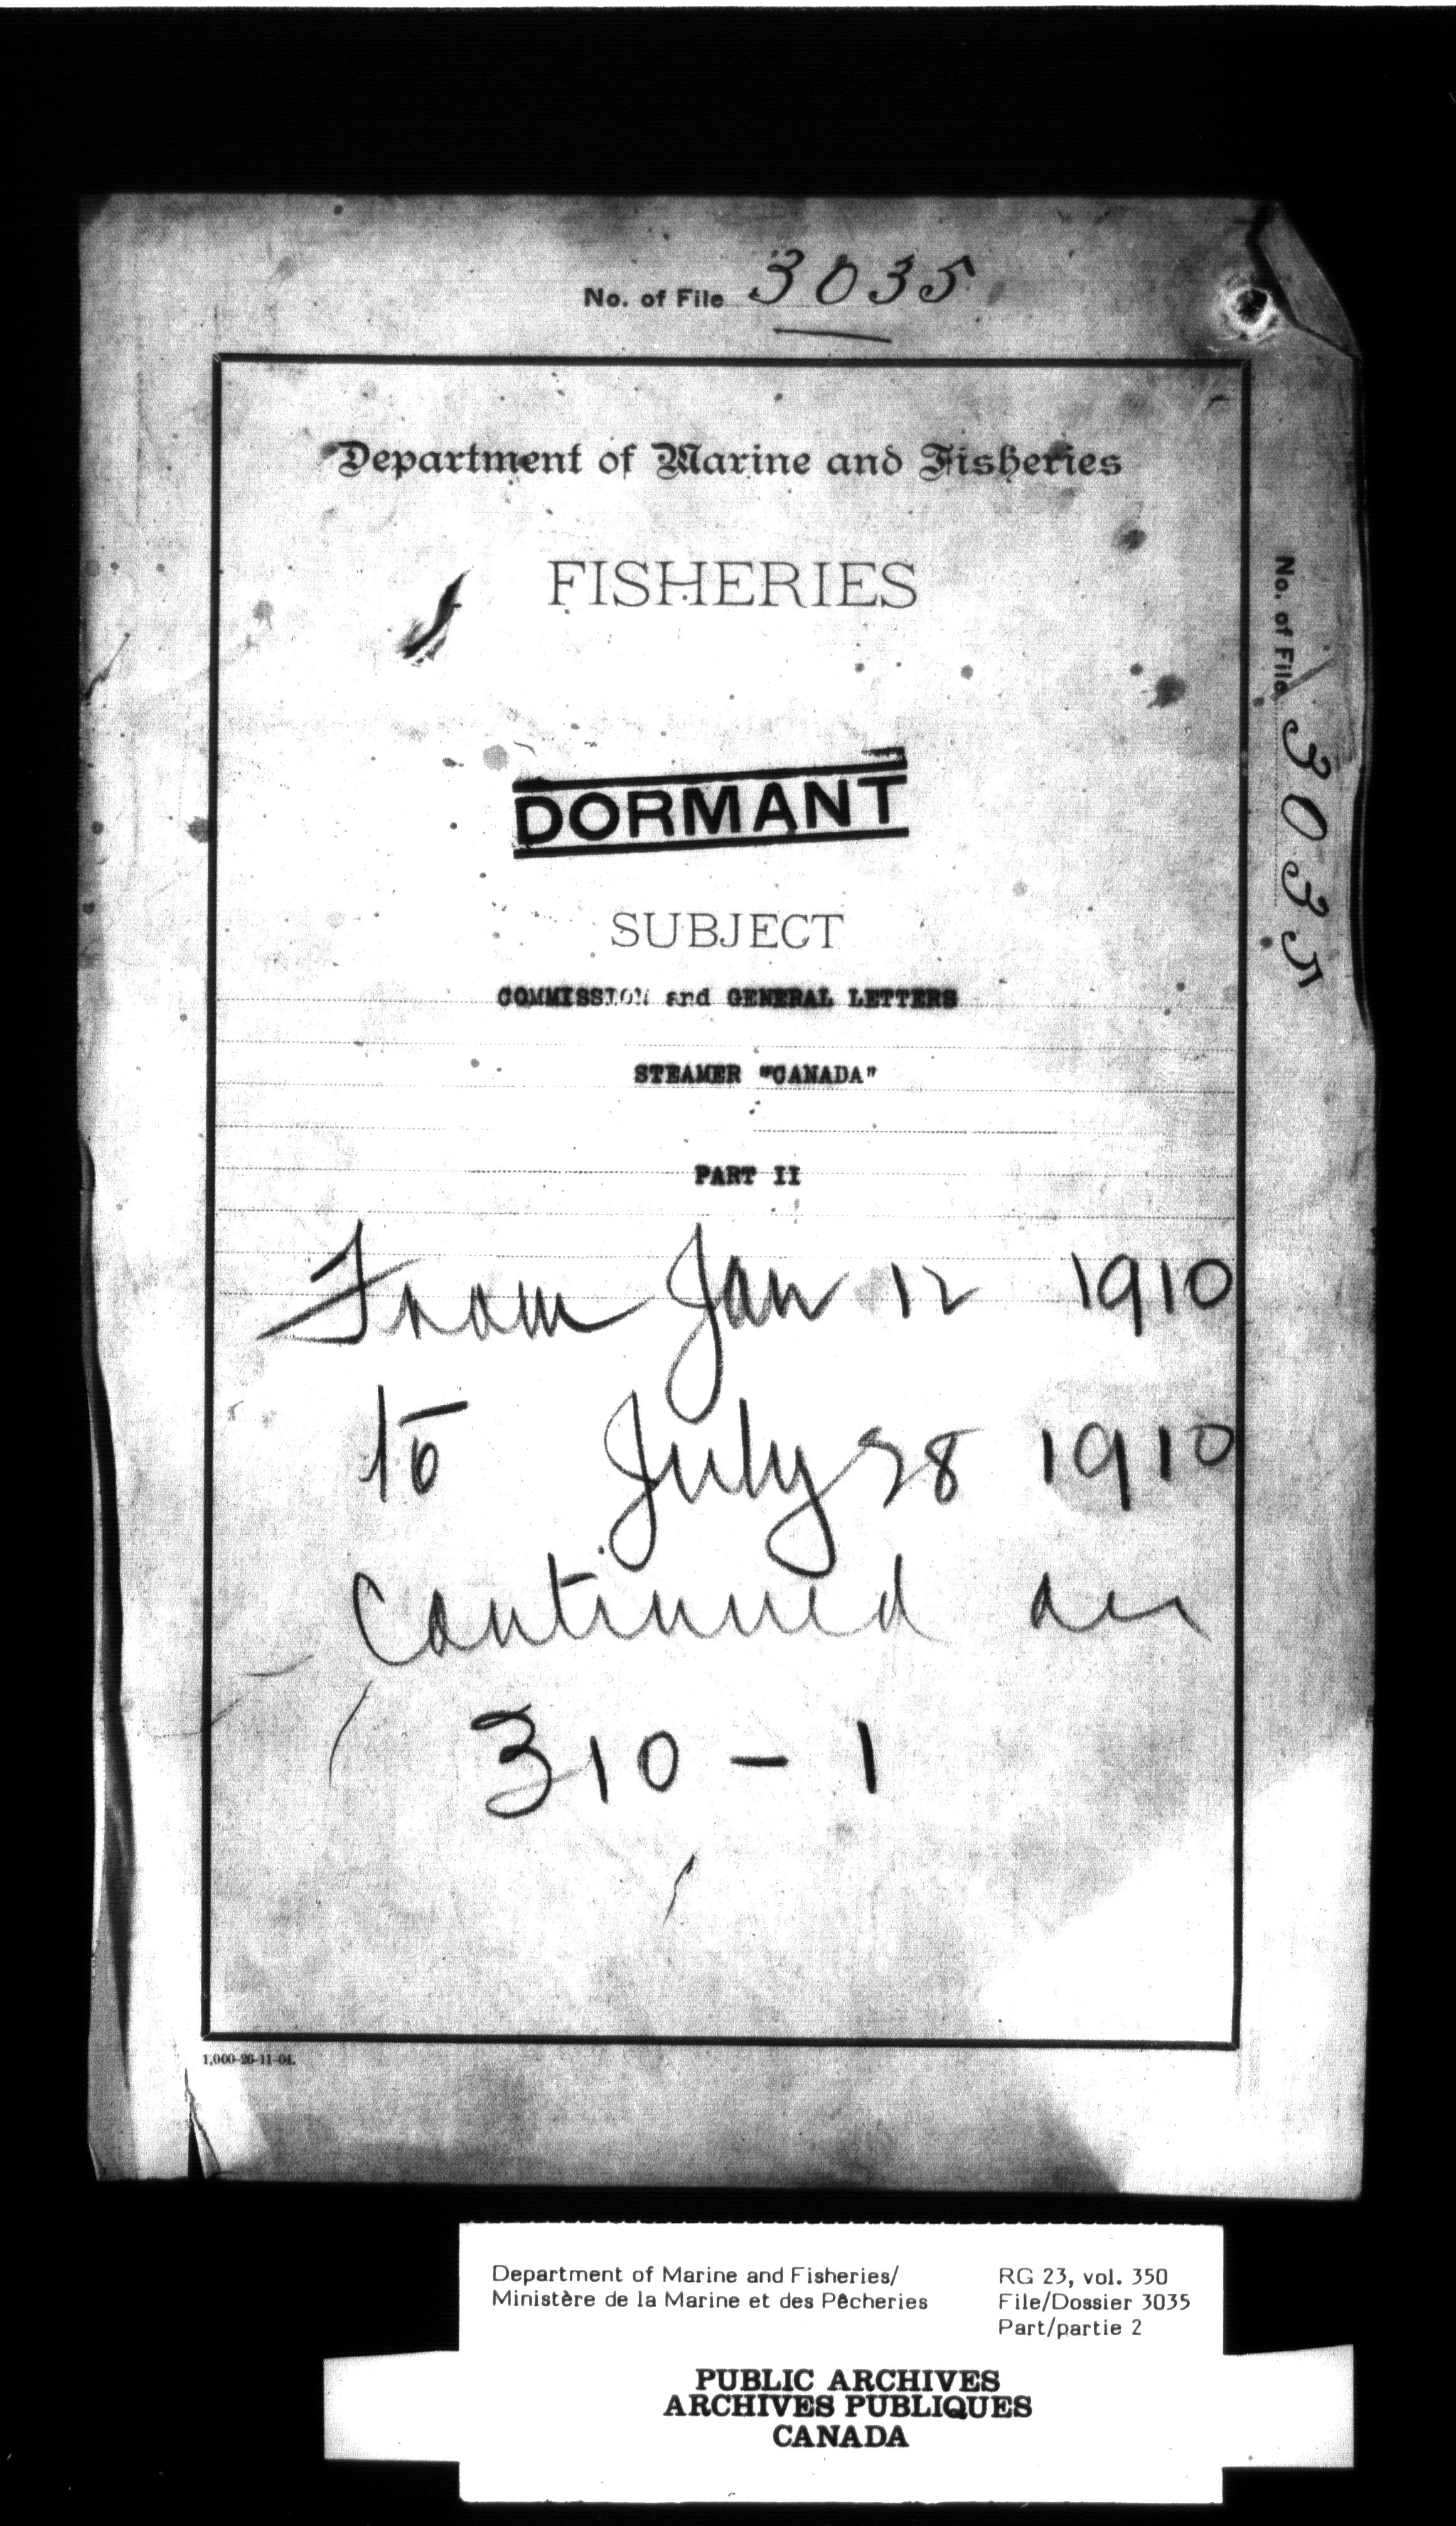 No. of File 3035
Department of Marine and Fisheries
FISHERIES
No. of File 3035
DORMANT
SUBJECT
COMMISSION and GENERAL LETTERS
STEAMER "CANADA"
PART II
From Jan 12 1910
to July 28 1910
Continued on
310-1
1,000-26-11-04.
Department of Marine and Fisheries/
Ministère de la Marine et des Pêcheries
RG 23, vol. 350
File/Dossier 3035
Part/partie 2
PUBLIC ARCHIVES
ARCHIVES PUBLIQUES
CANADA